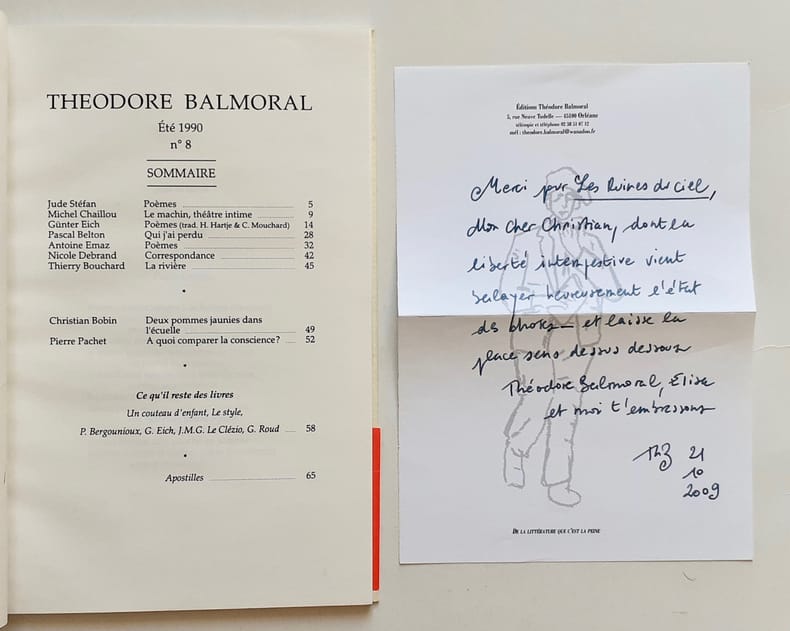 THEODORE BALMORAL
Été 1990
n° 8
SOMMAIRE
Jude Stéfan Poèmes 5
Michel Chaillou Le machin, théâtre intime 9
Günter Eich Poèmes (trad. H. Hartje & C. Mouchard) 14
Pascal Belton Qui j'ai perdu 28
Antoine Emaz Poèmes 32
Nicole Debrand Correspondance 42
Thierry Bouchard La rivière 45
Christian Bobin Deux pommes jaunies dans
l'écuelle 49
Pierre Pachet A quoi comparer la conscience? 52
Ce qu'il reste des livres
Un couteau d'enfant, Le style,
P. Bergounioux, G. Eich, J.M.G. Le Clézio, G. Roud 58
Apostilles 65
Éditions Théodore Balmoral
5, rue Neuve Tudelle — 45100 Orléans
télécopie et téléphone 02 38 51 07 12
mél : theodore.balmoral@wanadoo.fr
Merci pour Les Ruines du ciel,
Mon cher Christian, dont la
liberté intempestive vient
balayer heureusement l'état
des choses — et laisse la
place sens dessus dessous
Théodore Balmoral, Élisa
et moi t'embrassons
ThB 21
10
2009
DE LA LITTÉRATURE QUE C'EST LA PEINE